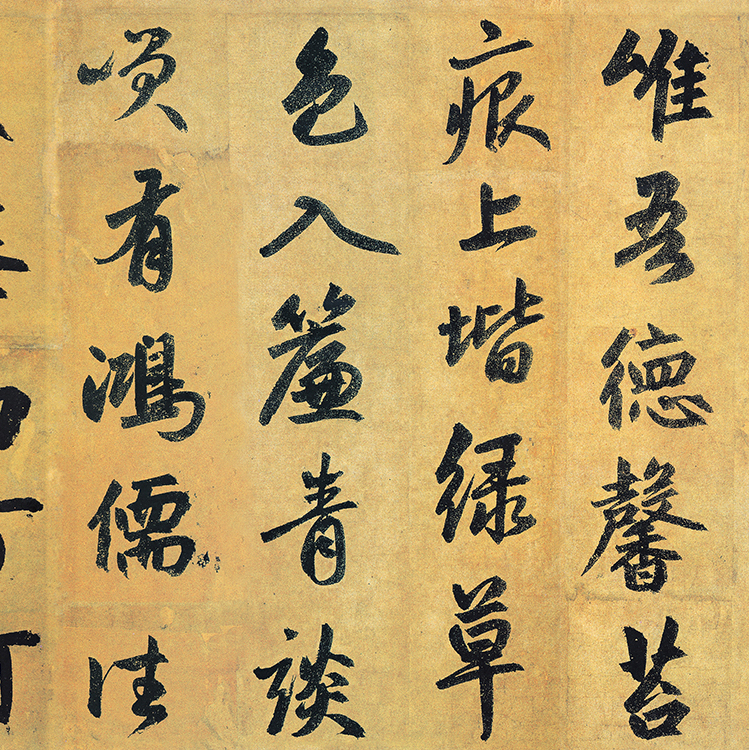 惟吾德馨苔
痕上堦綠草
色入簾青談
咲有鴻儒往